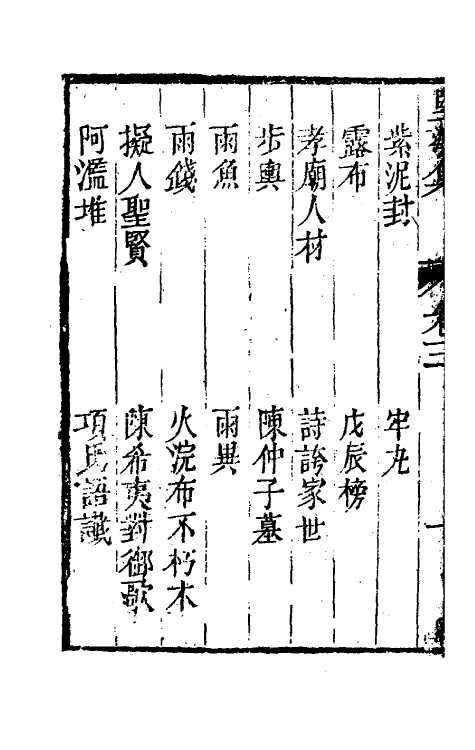 紫泥封　牢丸
露布　戊辰榜
孝廟人材　詩誇家世
步輿　陳仲子墓
雨魚　雨異
雨錢　火浣布不朽木
擬人聖賢　陳希夷對御歌
阿濫堆　項氏語讖